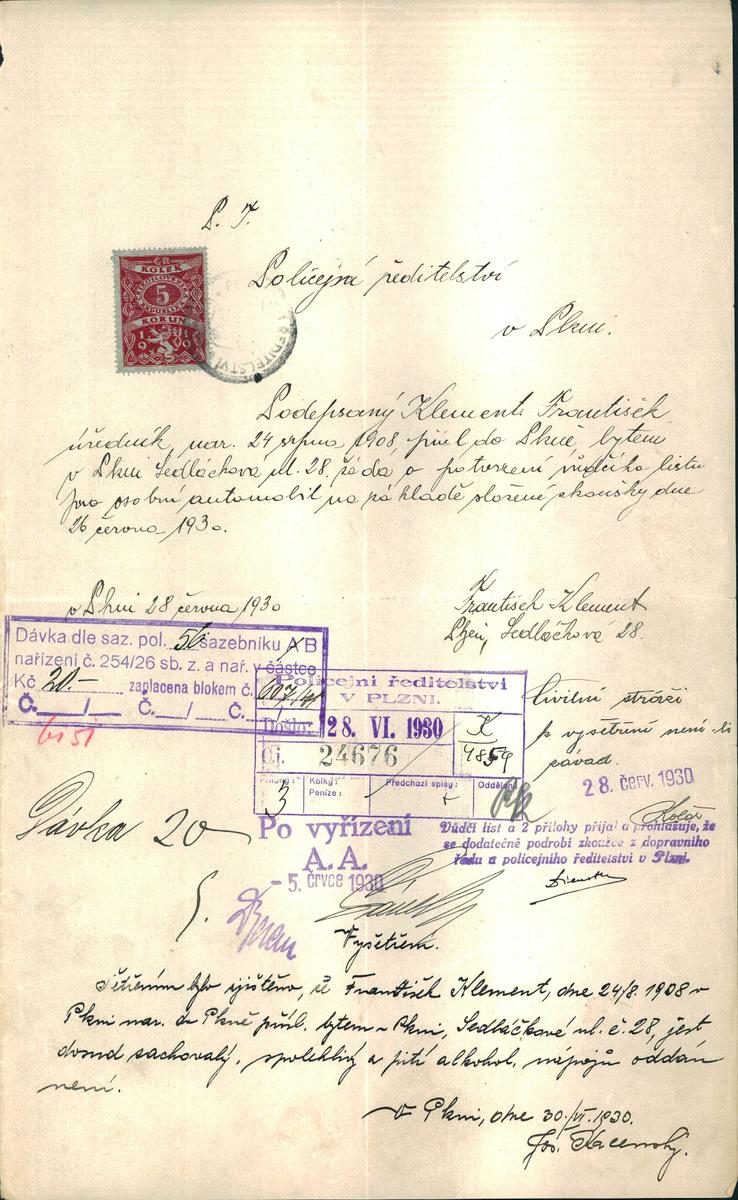 P. T.
Policejní ředitelství
v Plzni.
ČR
KOLEK
5
KORUN
1919
ŘEDITELSTVÍ
Podepsaný Klement František
úředník, nar. 24 srpna 1908 přísl. do Plzně, bytem
v Plzni Sedláčkova ul. 28. žádá o potvrzení vůdčího listu
pro osobní automobil na základě složené zkoušky dne
26 června 1930.
v Plzni 28 června 1930
František Klement
Plzeň, Sedláčkova 28.
Dávka dle saz. pol. 56 sazebníku A B
nařízení č. 254/26 sb. z. a nař. v částce
Kč 20.– zaplacena blokem č.
Č. / Č. / Č.
6151
Policejní ředitelství
V PLZNI.
Došlo: 28. VI. 1930
Čj. 24676
K
4859
Přílohy: Kolky: Peníze: Předchozí spisy: Oddělení
3
Civilní stráži
k vyšetření není-li
závad.
28. červ. 1930
Dávka 20
Po vyřízení
A. A.
- 5. črvce 1930
Vůdčí list a 2 přílohy přijal a prohlašuje, že
se dodatečně podrobí zkoušce z dopravního
řádu u policejního ředitelství v Plzni.
Vyšetření.
Šetřením bylo zjištěno, že František Klement, dne 24/8. 1908 v
Plzni nar. do Plzně přísl. bytem v Plzni, Sedláčkově ul. č. 28, jest
dosud zachovalý, spolehlivý a pití alkohol. nápojů oddán
není.
V Plzni, dne 30./VI. 1930.
Jos.